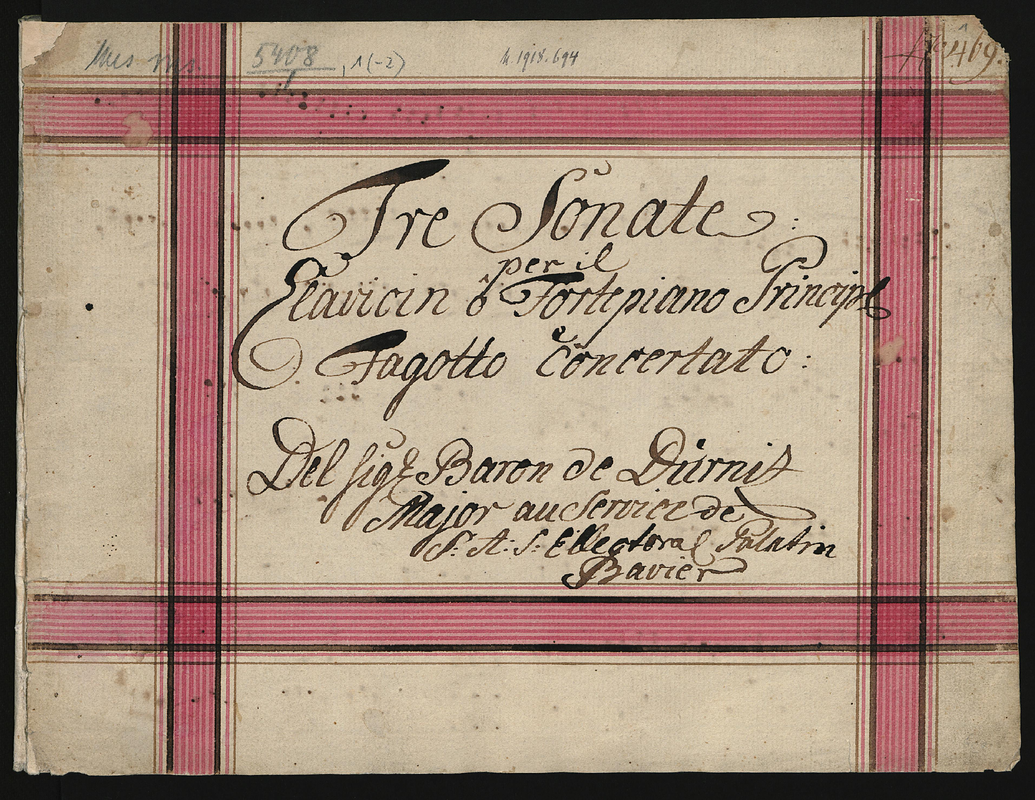 Mus ms. 5408, 1(-2) M. 1918.694 No 169.
Tre Sonate:
per il
Clavicin ô Fortepiano Princip
Fagotto Concertato:
Del Sigr Baron de Dürniz
Major au Service de
S: A: S: Electoral Palatin
Bavier